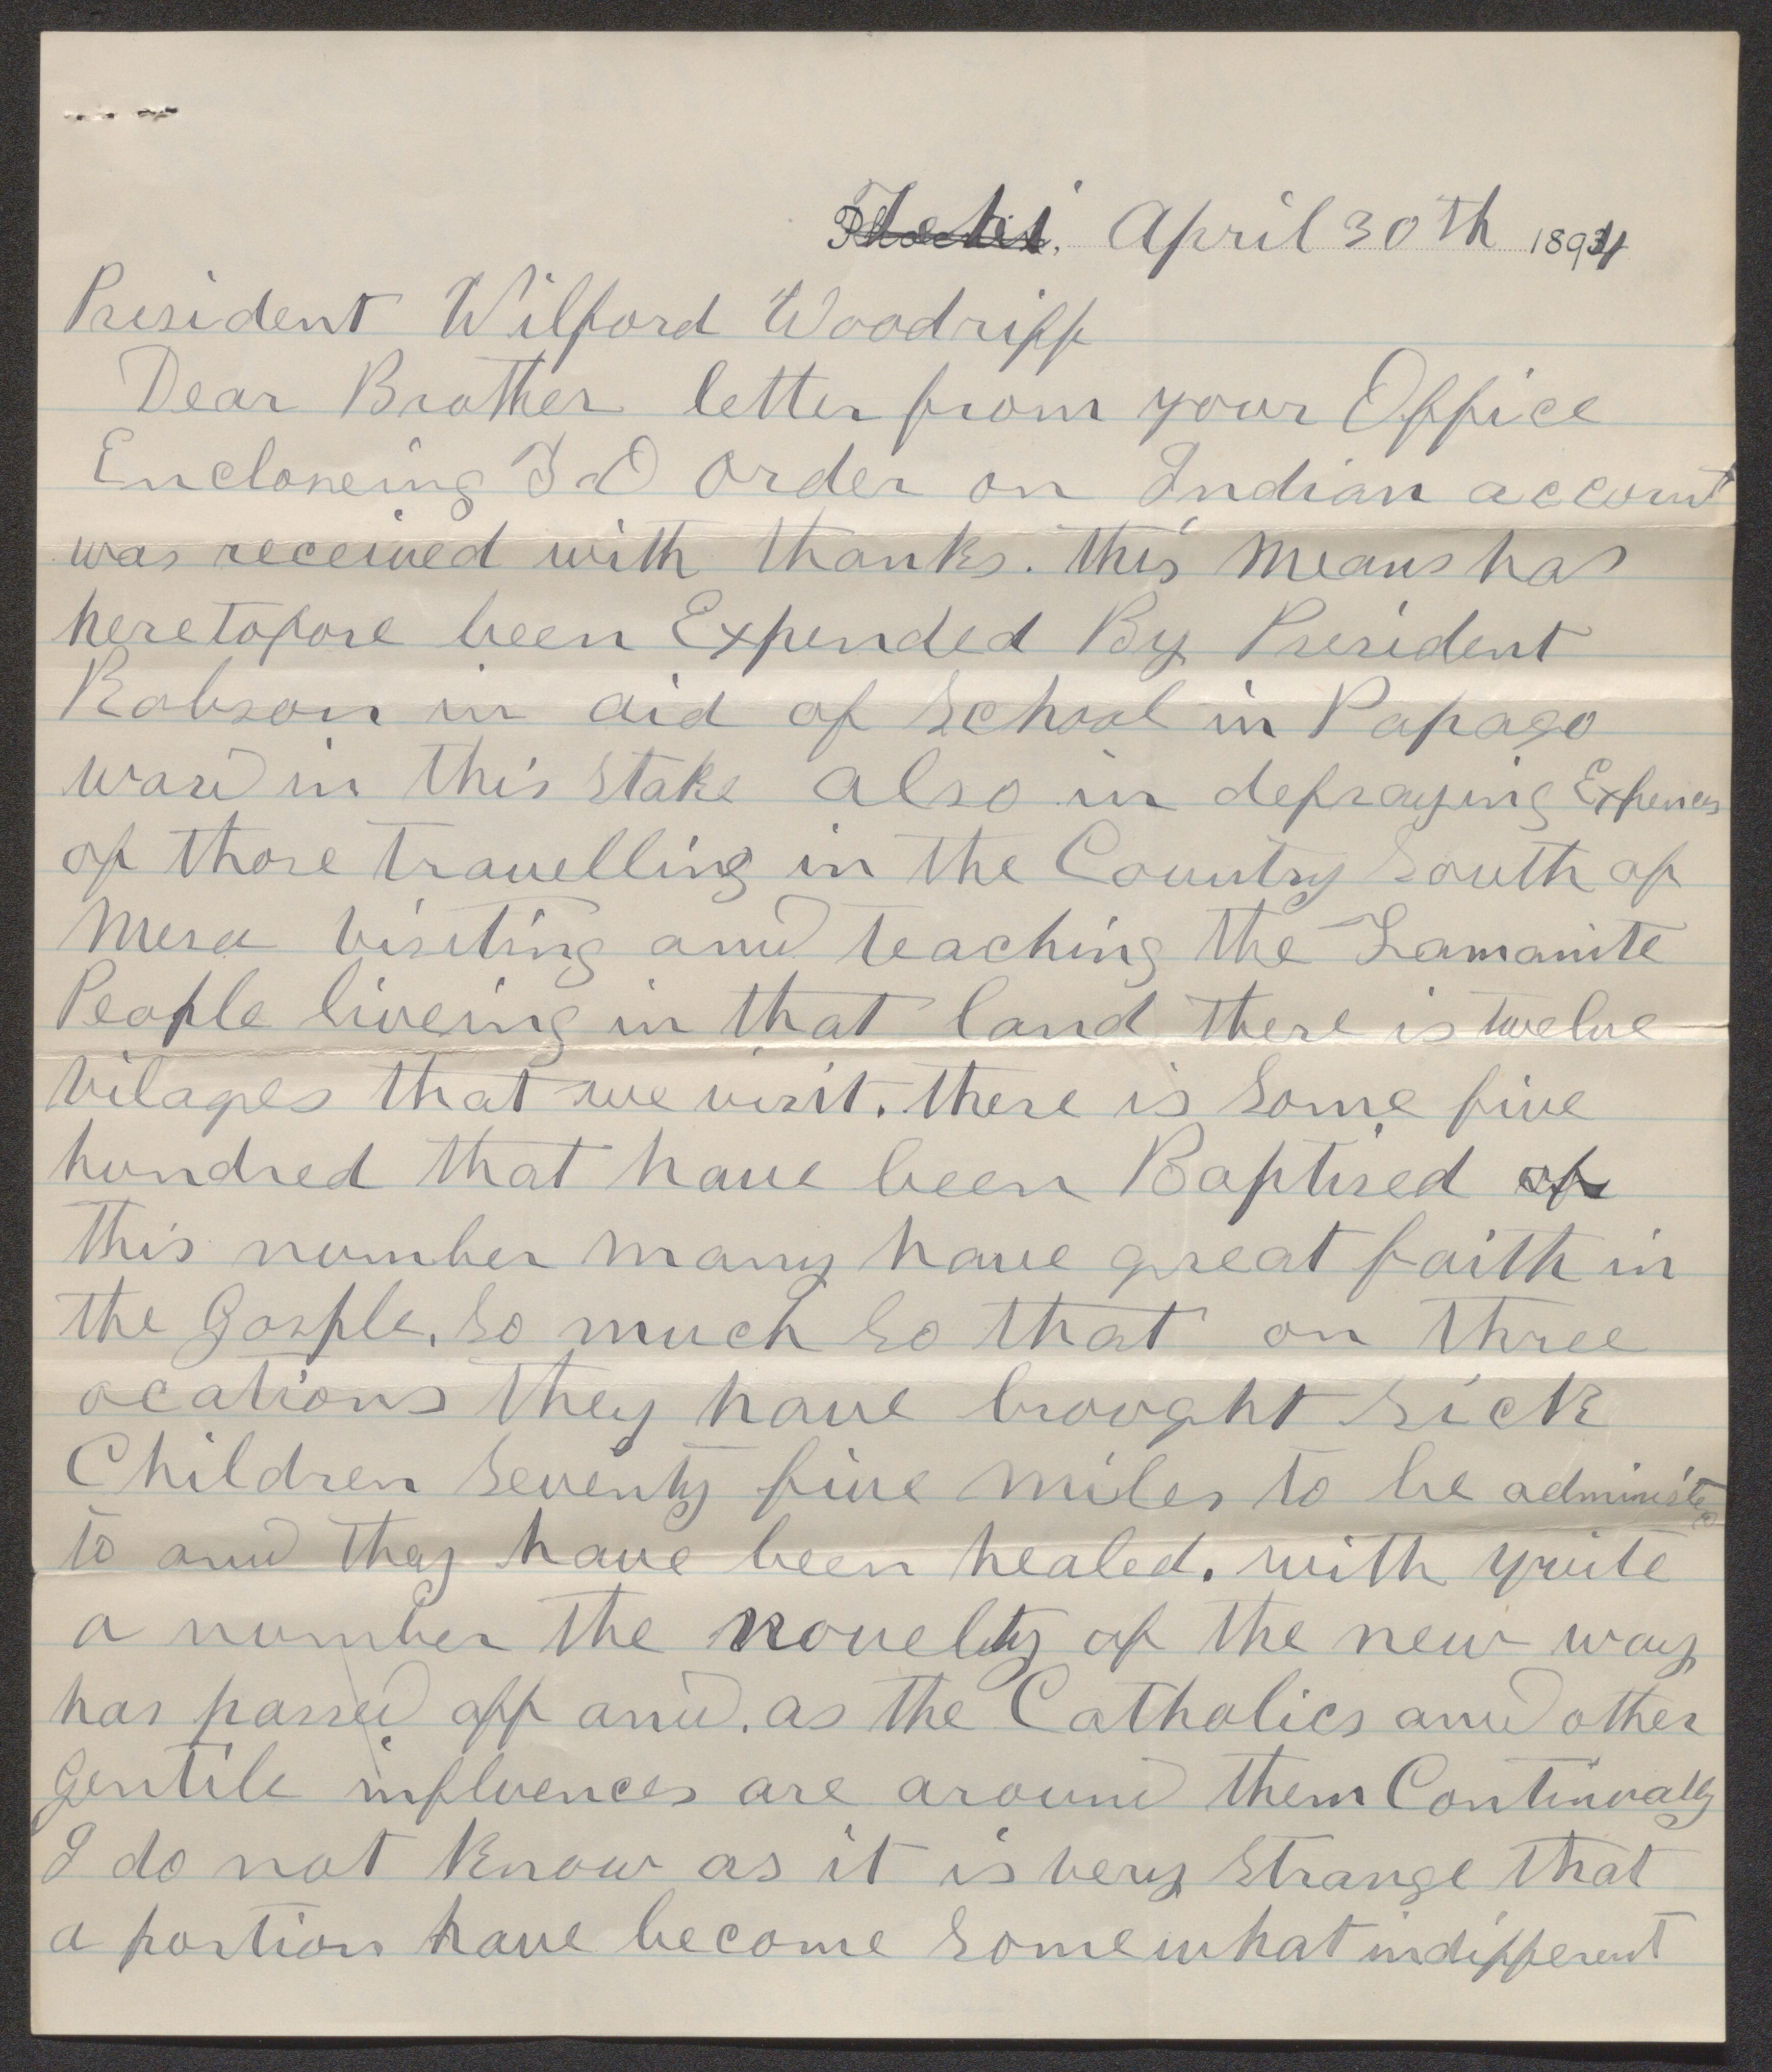 Lehi April 30th 1894
President Wilford Woodriff
Dear Brother letter from your Office
Encloseing T O order on Indian account
was received with thanks. this means has
heretofore been Expended By President
Robson in aid of School in Papago
ward in this Stake also in defraying Expences
of those travelling in the Country South of
Mesa visiting and teaching the Lamanite
People liveing in that land there is twelve
vilages that we visit. there is Some five
hundred that have been Baptised of
this number many have great faith in
the Gosple, So much So that on three
ocations they have brought Sick
Children Seventy five miles to be administed
to and they have been healed. with quite
a number the novelty of the new way
has passed off and. as the Catholics and other
Gentile influences are around them Continually
I do not Know as it is very Strange that
a portion have become Somewhat indifferent